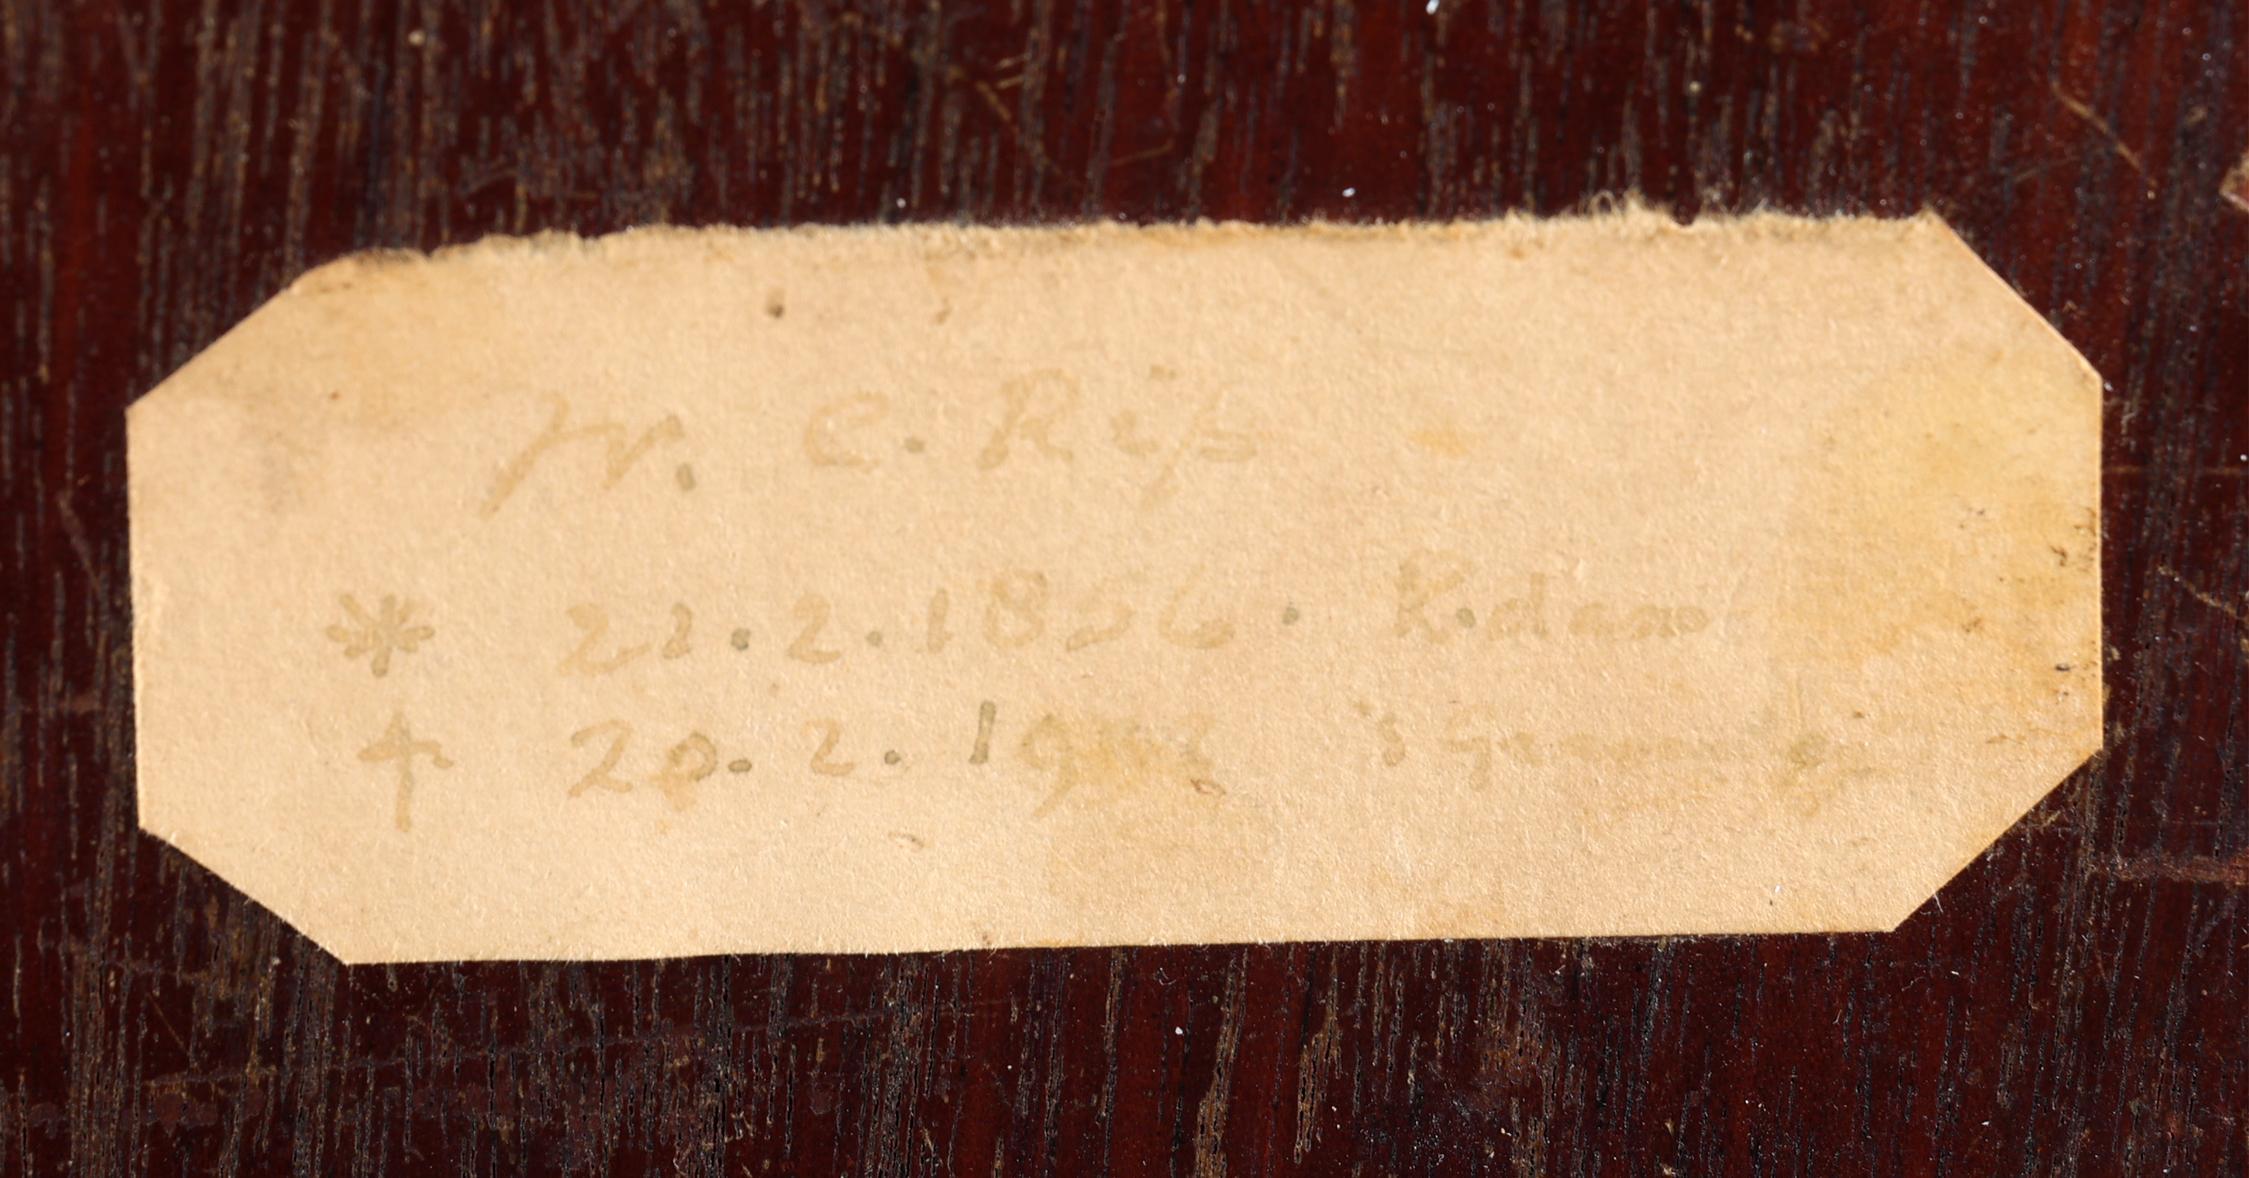 W. C. Rip
* 22.2.1856. R.dam
† 20.2.1922 's Gravenhage